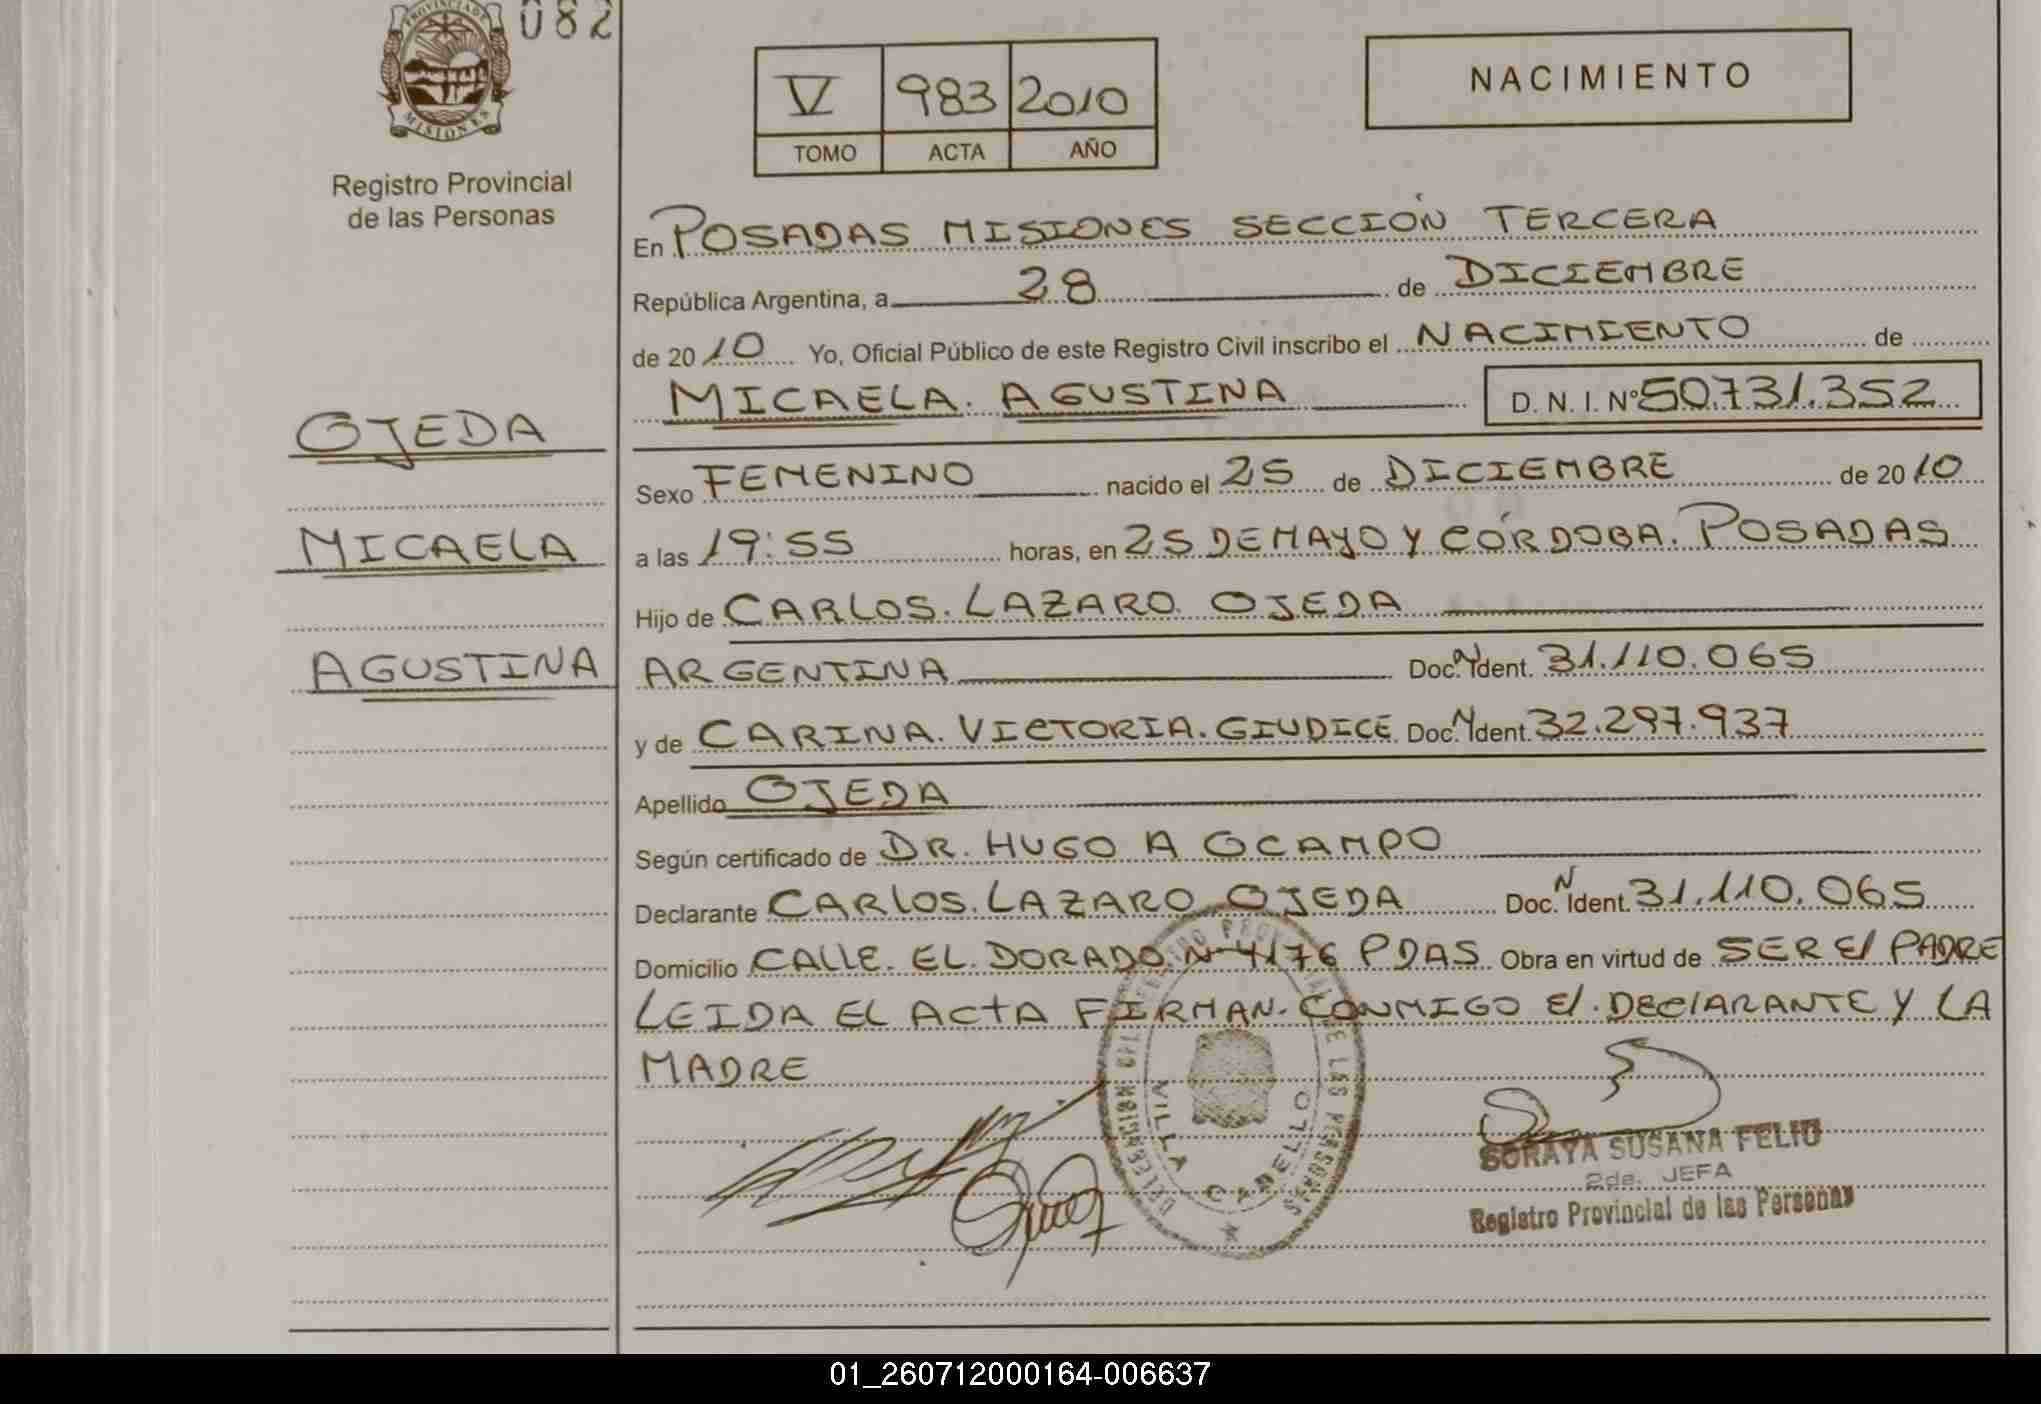 PROVINCIA DE
MISIONES
082
Registro Provincial
de las Personas
V 983 2010
TOMO ACTA AÑO
NACIMIENTO
OJEDA
MICAELA
AGUSTINA
En POSADAS MISIONES SECCIÓN TERCERA
República Argentina, a 28 de DICIEMBRE
de 2010 Yo, Oficial Público de este Registro Civil inscribo el NACIMIENTO de
MICAELA. AGUSTINA D. N. I. Nº 50.731.352
Sexo FEMENINO nacido el 25 de DICIEMBRE de 2010
a las 19:55 horas, en 25 DE MAYO Y CÓRDOBA. POSADAS
Hijo de CARLOS. LAZARO OJEDA
ARGENTINA Doc. N Ident. 31.110.065
y de CARINA. VICTORIA. GIUDICE Doc. N Ident. 32.297.937
Apellido OJEDA
Según certificado de DR. HUGO A OCAMPO
Declarante CARLOS. LAZARO OJEDA Doc. N Ident. 31.110.065
Domicilio CALLE. EL DORADO N 4176 PDAS Obra en virtud de SER El PADRE
LEIDA EL ACTA FIRMAN. CONMIGO El. DEClARANTE Y LA
MADRE
VILLA CABELLO
SORAYA SUSANA FELIU
2da. JEFA
Registro Provincial de las Personas
01_260712000164-006637